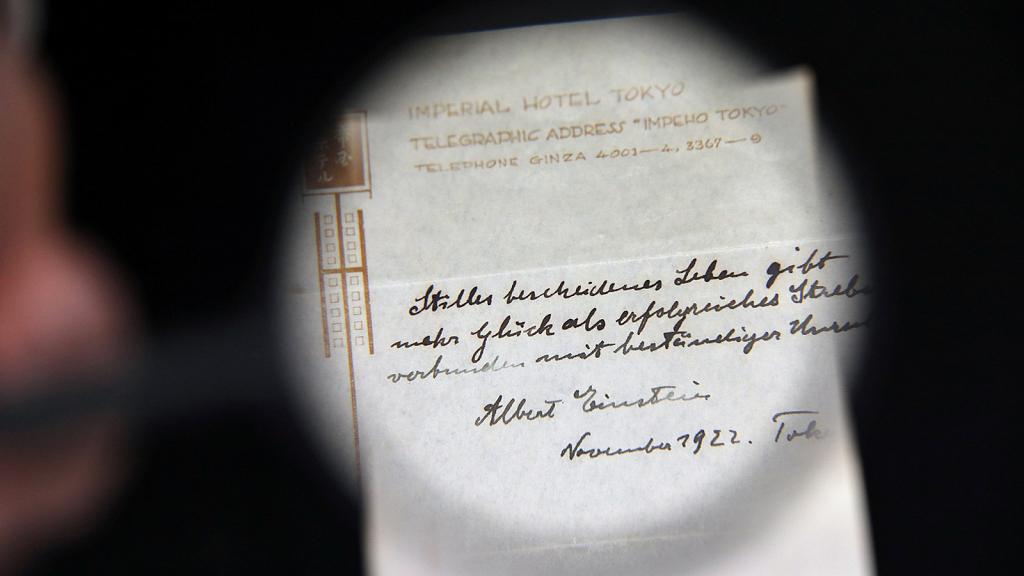 IMPERIAL HOTEL TOKYO
TELEGRAPHIC ADDRESS "IMPEHO TOKYO"
TELEPHONE GINZA 4001—4, 3367—9
ホテル
Stilles bescheidenes Leben gibt
mehr Glück als erfolgreiches Strebe
verbunden mit beständiger Unru
Albert Einstein
November 1922. Tok